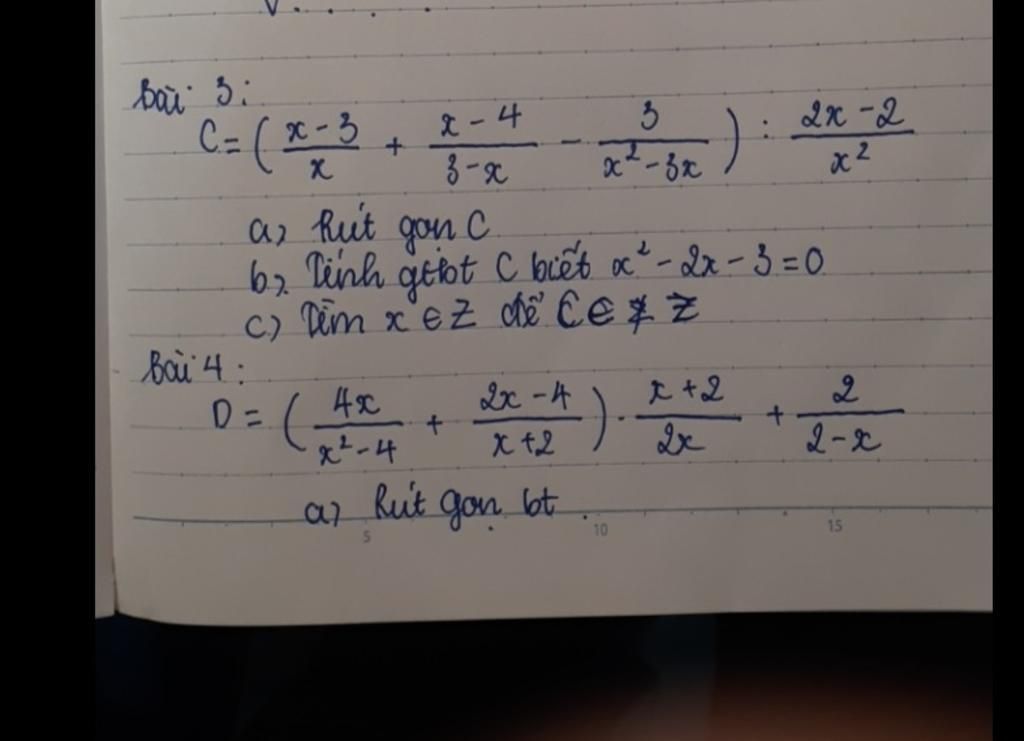 Bài 3:
C = ( \frac{x-3}{x} + \frac{x-4}{3-x} - \frac{3}{x^2-3x} ) : \frac{2x-2}{x^2}
a) Rút gọn C
b) Tính gtbt C biết x² - 2x - 3 = 0
c) Tìm x ∈ Z để C ∈ Z
Bài 4:
D = ( \frac{4x}{x^2-4} + \frac{2x-4}{x+2} ) . \frac{x+2}{2x} + \frac{2}{2-x}
a) Rút gọn bt
5 10 15